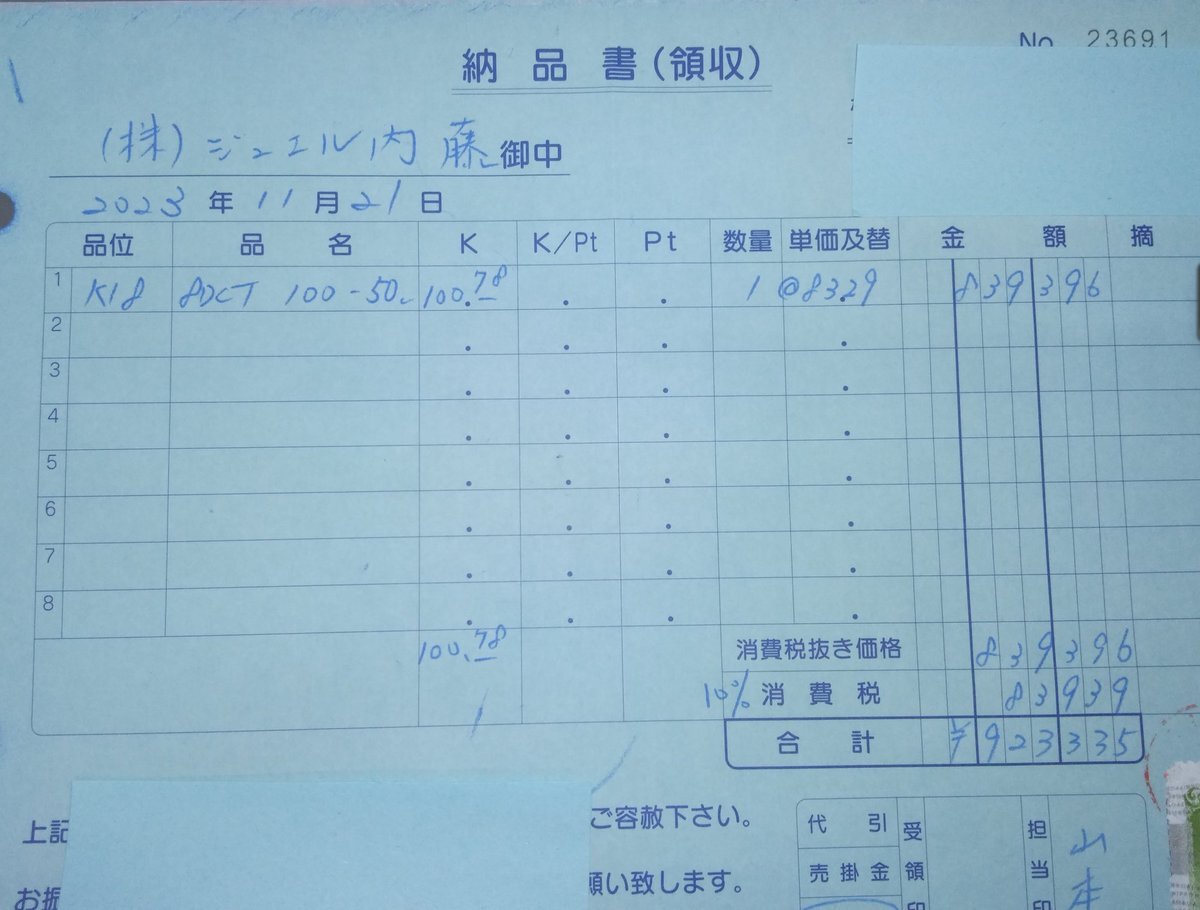 No 23691
納品書(領収)
(株)ジュエル内藤 御中
2023年11月21日
品位 品名 K K/Pt Pt 数量 単価及替 金額 摘
1 K18 8DCT 100-50 100.78 1 @8329 839396
2
3
4
5
6
7
8
100.78 消費税抜き価格 839396
10% 消費税 83939
合計 ¥923335
上記 ご容赦下さい。
お振 願い致します。
代引 受領印 担当印 山本
売掛金